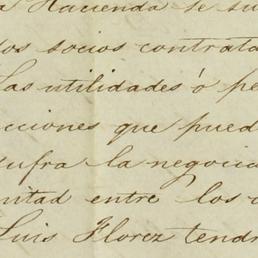 a Hacienda se su
dos socios contrata
Las utilidades ó pe
cciones que pued
sufra la negocia
mitad entre los
Luis Florez tendr